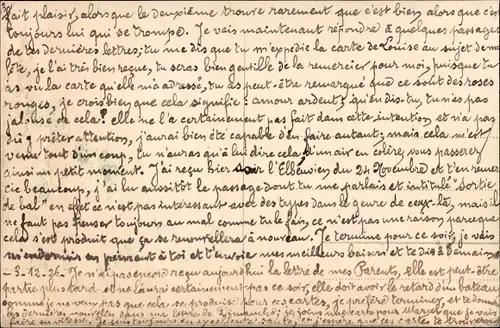 fait plaisir, alors que le deuxième trouve rarement que c'est bien, alors que c'est
toujours lui qui se trompe. Je vais maintenant répondre à quelques passages
de tes dernières lettres, tu me dis que tu m'expédie la carte de Louise au sujet de ma
fête, je l'ai très bien reçue, tu seras bien gentille de la remercier pour moi, puisque tu
as vu la carte qu'elle m'a adressé, tu as peut-être remarqué que ce sont des roses
rouges, je crois bien que cela signifie: amour ardent; qu'en dis-tu, tu n'es pas
jalouse de cela? elle ne l'a certainement pas fait dans cette intention et n'a pas
dû y prêter attention, j'aurai bien été capable d'en faire autant; mais cela m'est
venu tout d'un coup, tu n'auras qu'à lui dire cela d'un air en colère, vous passerez
ainsi un petit moment. J'ai reçu hier soir l'Elbeuvien du 24 Novembre et t'en remer-
cie beaucoup, j'ai lu aussitôt le passage dont tu me parlais et intitulé "sortie
de bal" en effet ce n'est pas intéressant avec des types dans le genre de ceux-là, mais il
ne faut pas penser toujours au mal comme tu le fais, ce n'est pas une raison parce que
cela s'est produit que ça se renouvellera à nouveau. Je termine pour ce soir, je vais
m'endormir en pensant à toi et t'envoie mes meilleurs baisers et te dis à demain
- 3-12-26 - Je n'ai pas encore reçu aujourd'hui la lettre de mes Parents, elle est peut-être
partie plus tard et ne l'aurai certainement pas ce soir, elle doit avoir le retard du bateau
comme je ne veux pas que cela se produise pour ces cartes, je préfère terminer, et te donner
les dernières nouvelles dans ma lettre de Dimanche; je joins une carte pour